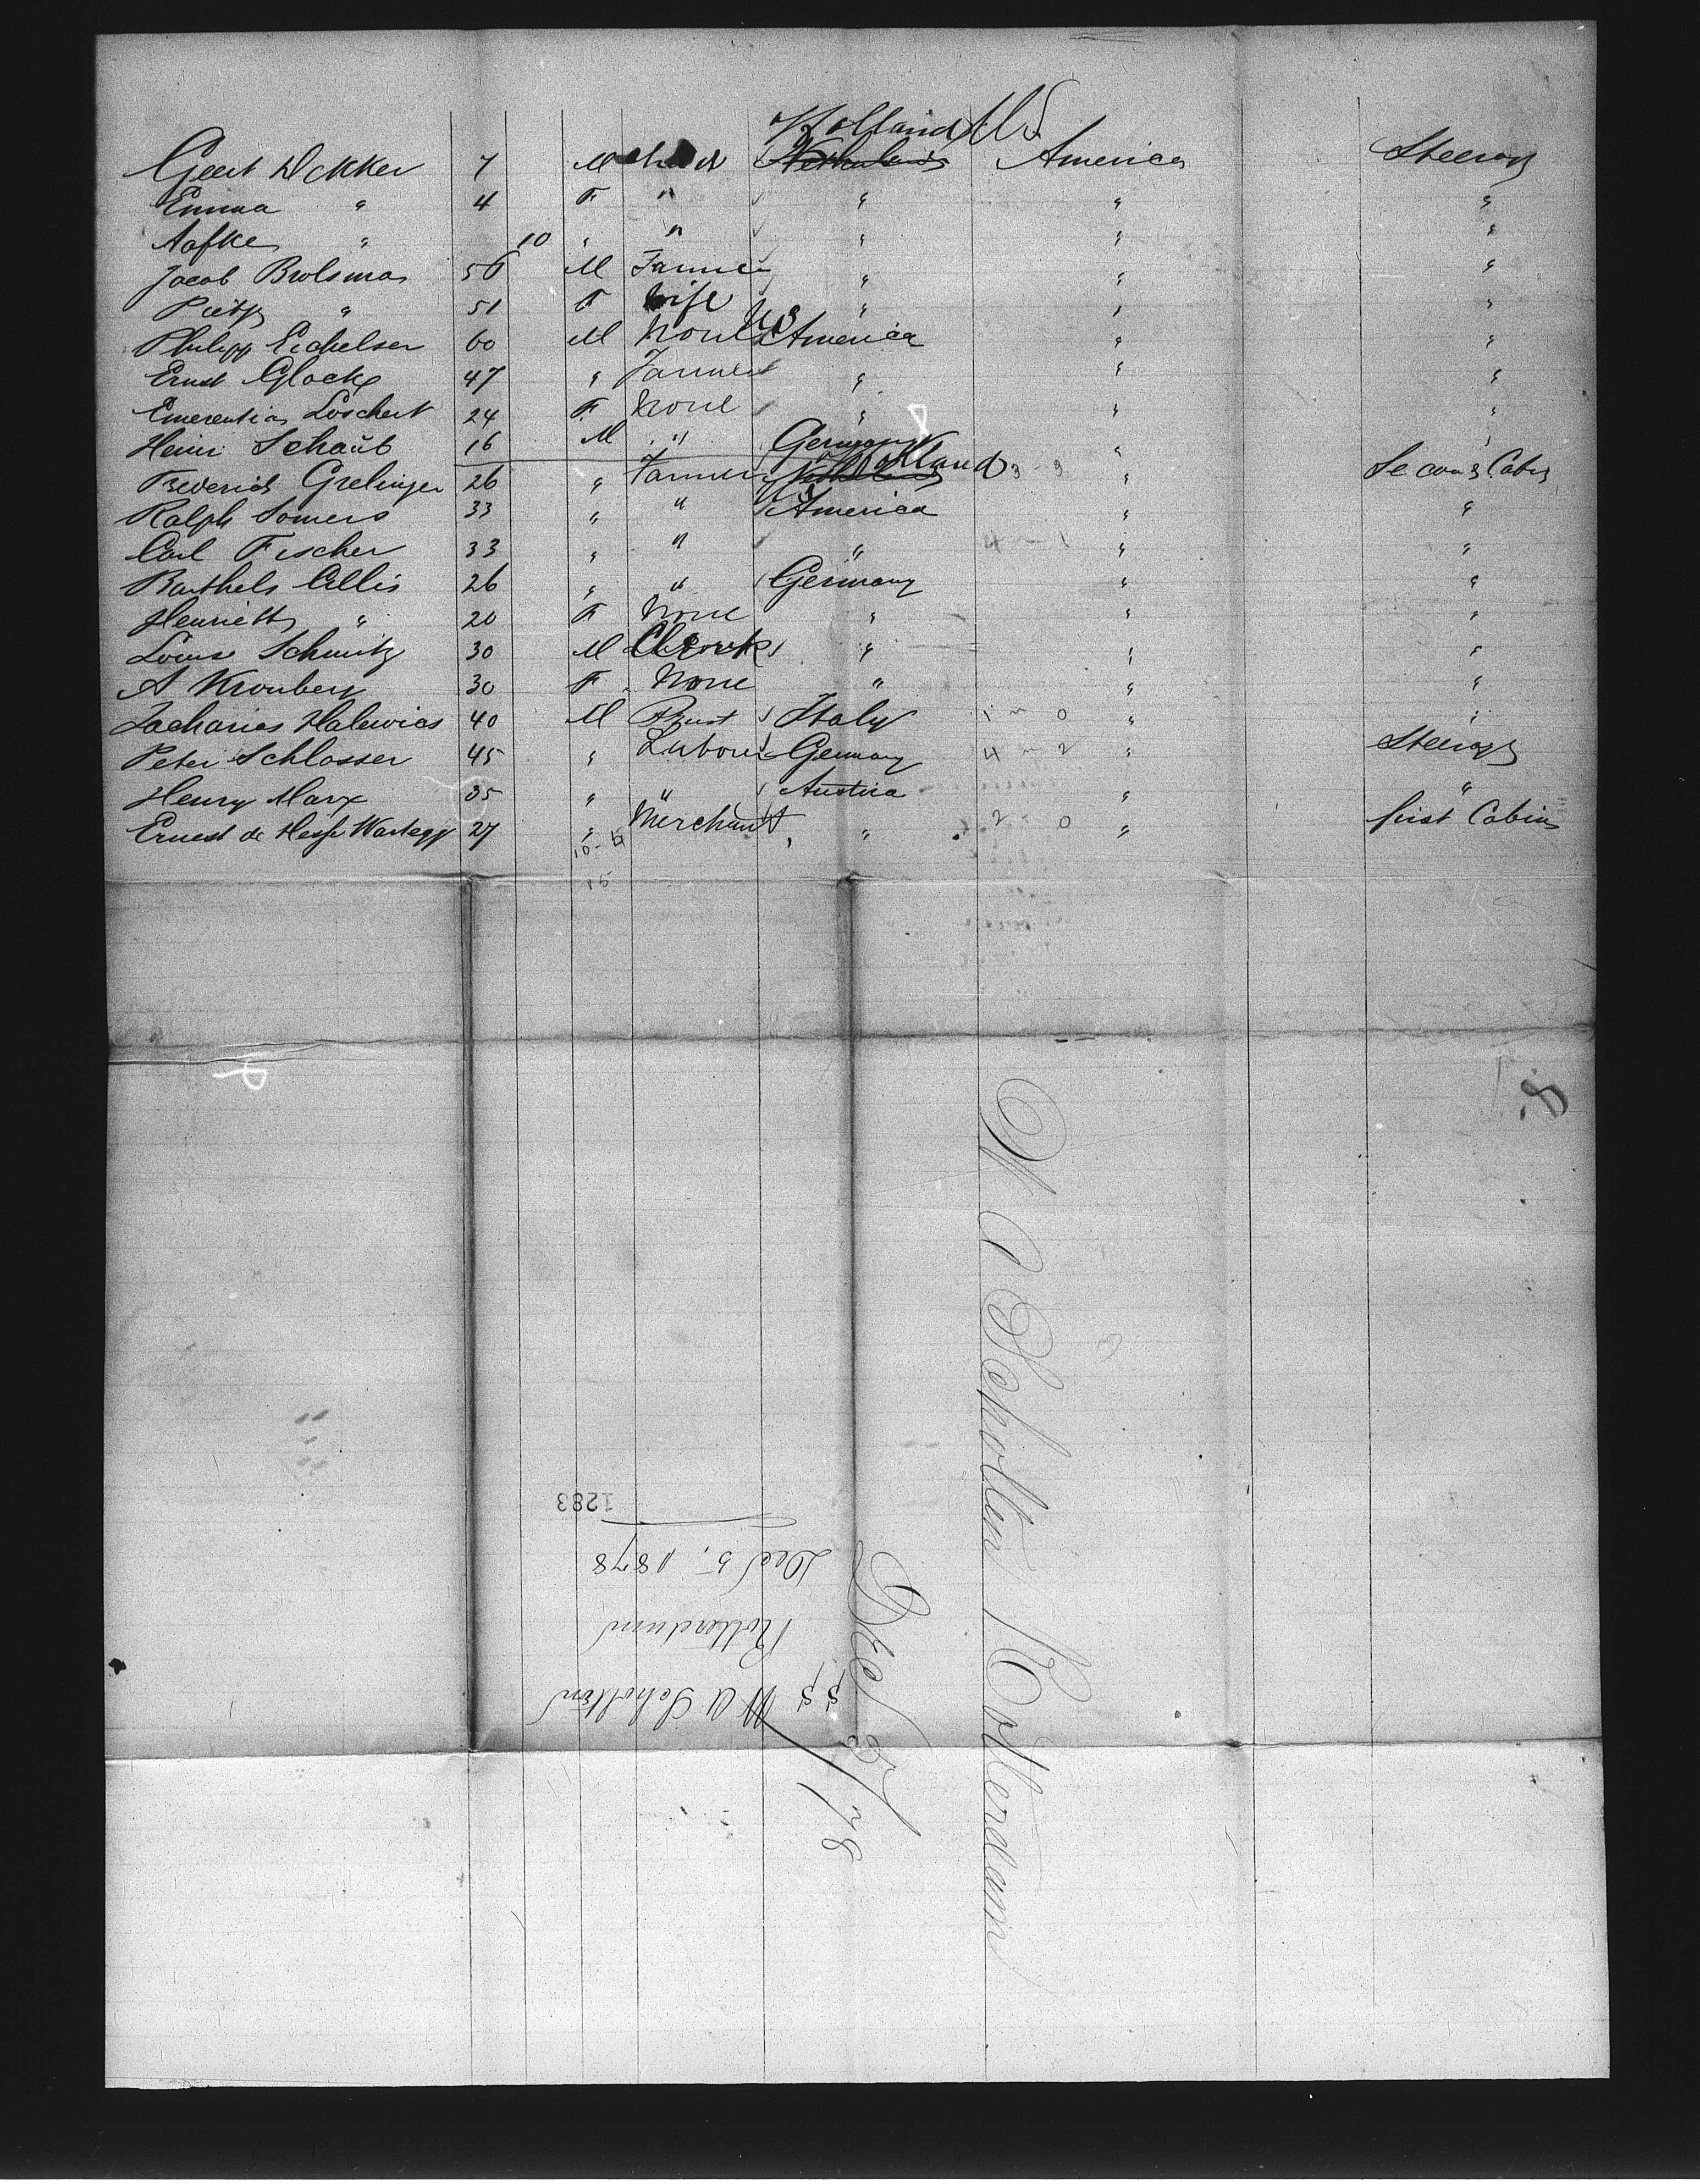 Holland U S
Geert Dekker 7 M child Netherlands America Steerage
Emma " 4 F " " " "
Aafke " 10 " " " " "
Jacob Brolsma 56 M Farmer " " "
Pietje " 51 F Wife " " "
Philipp Eichelser 60 M None U S America " "
Ernst Glocke 47 " Farmer " " "
Emerentia Löschert 24 F None " " "
Heinr Schaub 16 M " Germany " "
Frederick Grelinger 26 " Farmer Netherlands Holland 3-3 " Second Cabin
Ralph Somers 33 " " U S America " "
Carl Fischer 33 " " " " "
Barthels Cillis 26 " " Germany " "
Henriette " 20 F None " " "
Louis Schmitz 30 M Clerk " " "
A Kronberg 30 F None " " "
Zacharias Halewias 40 M Priest Italy 1-0 " "
Peter Schlosser 45 " Labourer Germany 4-2 " Steerage
Henry Marx 35 " " Austria " "
Ernest de Hesse Wartegg 27 " Merchant " 2-0 " first Cabin
15
W A Scholten Rotterdam
Dec 5/78
S S W A Scholten
Rotterdam
Dec 5, 1878
1283